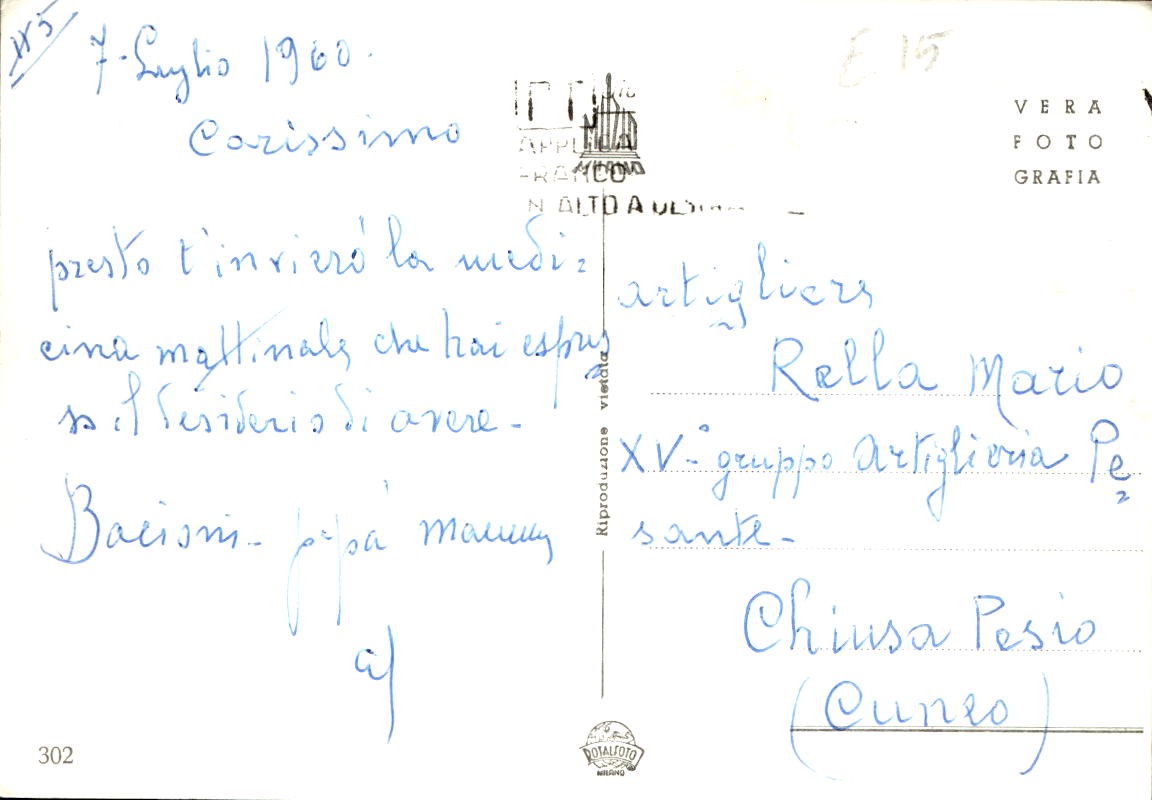 N5
7. Luglio 1960.
Carissimo
presto t'invierò la medi=
cina mattinale che hai espres
so il desiderio di avere -
Bacioni - papà mamma
E 15
APPLICA
FRANCO
N ALTO A DES
MILANO
VERA
FOTO
GRAFIA
artigliere
Rella Mario
XV-° gruppo Artiglieria Pe=
sante -
Chiusa Pesio
(Cuneo)
Riproduzione vietata
302
ROTALFOTO
MILANO